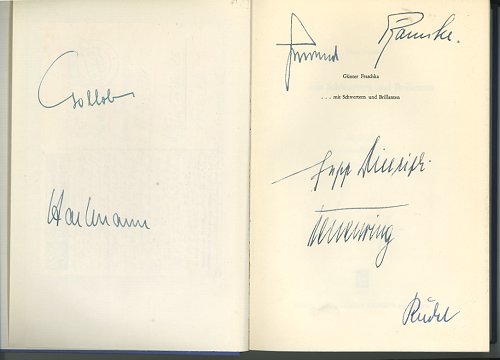 Gollob
Hartmann
Ramcke.
Günter Fraschka
. . . mit Schwertern und Brillanten
Sepp Dietrich
Rudel